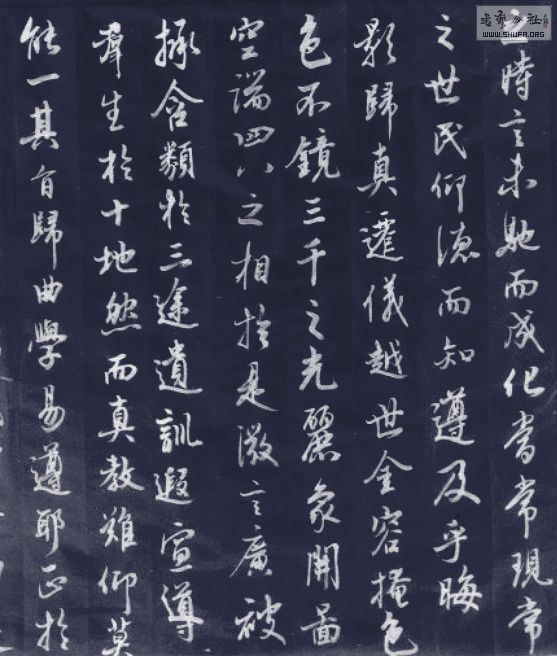 時言未馳而成化當常現常
之世民仰德而知遵及乎晦
影歸真遷儀越世金容掩色
色不鏡三千之光麗象開圖
空端四八之相於是微言廣被
拯含類於三途遺訓遐宣導
群生於十地然而真教難仰莫
能一其旨歸曲學易遵耶正於
WWW.SHUFA.ORG